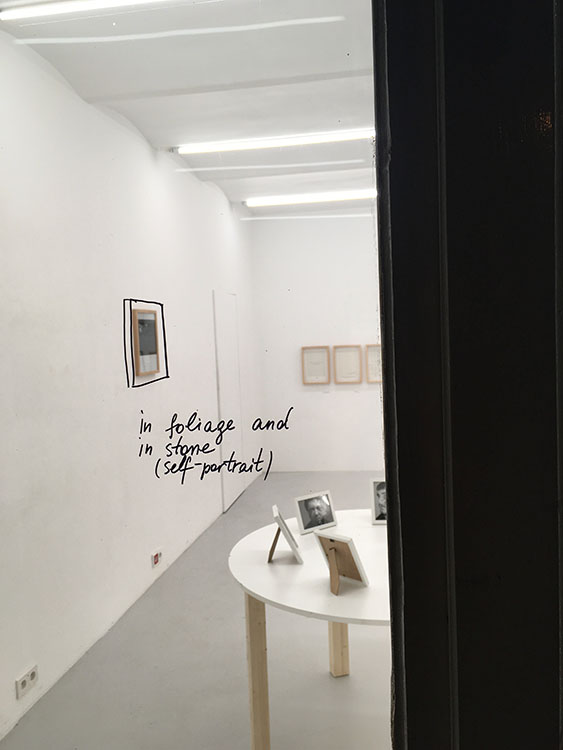 in foliage and
in stone
(self-portrait)